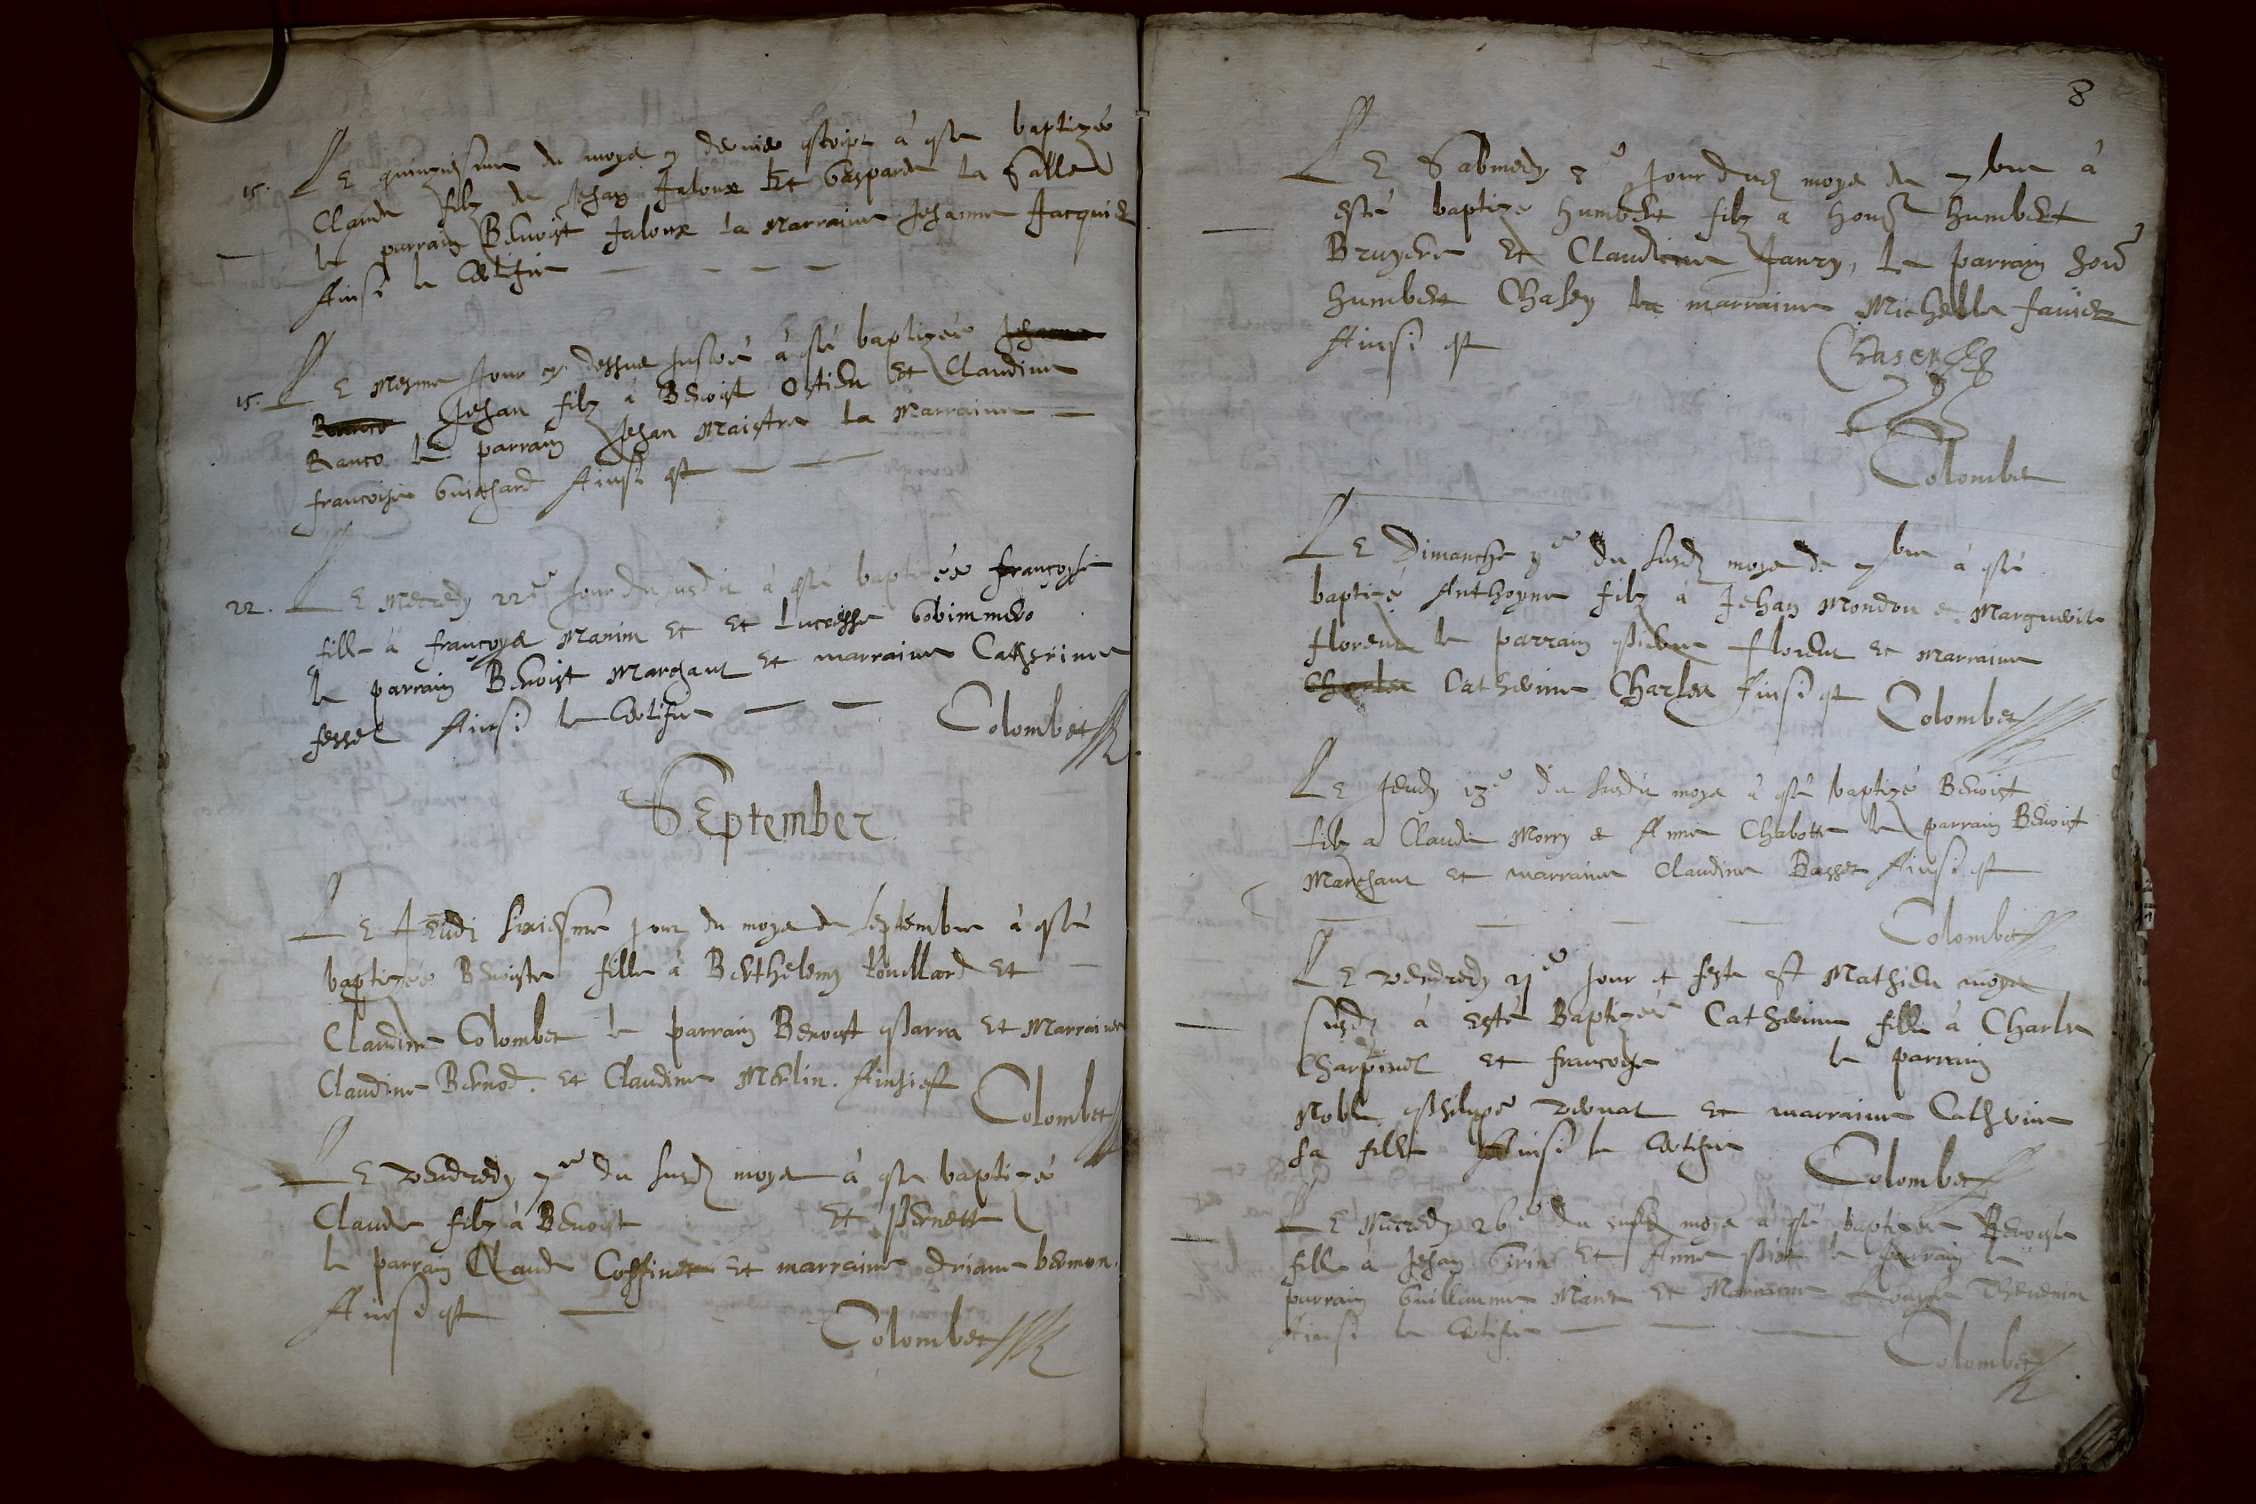 15. Le quinziesme du moys dernier escript à esté baptizé
Claude filz de Jehan Jaloux Et Gasparde La Salle
le parrain Benoist Jaloux la Marraine Jehanne Jacquier
Ainsi le Certifie
15. Le Mesme Jour cy dessus à esté baptizée Jehanne
Ranco Jehan filz à Benoist Et Claudine
Ranco le parrain Jehan Maistre La Marraine
francoise Guichard Ainsi est
22. Le Mecredy 22e Jour à esté baptizée françoyse
fille à françoys Et Et
le parrain Benoist Marchant Et marraine Catherine
fessel Ainsi le Certifie
Colombet
SEptember
Le Jeudi sixiesme jour du moys de septembre à esté
baptizée Benoiste fille à Berthelemy Rouillard Et
Claudine Colombet le parrain Benoist Et Marraine
Claudine Bernod. Et Claudine Merlin. Ainsi est
Colombet
Le vendredy 7e du susd moys à esté baptizé
Claude filz à Benoist Et pernette
le parrain Claude Coffinet Et marraine
Ainsi est
Colombet
8
Le Sabmedy jour dud moys de 7bre à
esté baptizé humbert filz a humbert
Bruyere Et Claudine Janry, Le parrain
humbert Chasey la marraine Michelle favier
Ainsi est
Chasey
Colombet
Le Dimanche 9e du susd moys de 7bre à esté
baptizé Anthoyne filz à Jehan Mondon e Marguerite
florent le parrain florent Et Marraine
Charles Catherine Charles Ainsi est
Colombet
Le Jeudy 13e du susdit moys à esté baptizé Benoist
filz a Claude Morry e Anne Chabotte le parrain Benoist
Marchant Et marraine Claudine Basset Ainsi est
Colombet
Le vendredy 21e jour et feste St Mathieu moys
susd à esté Baptizée Catherine fille à Charles
Charpinel Et francoyse le parrain
Noble Et marraine Catherine
sa fille Ainsi le Certifie
Colombet
Le Mecredy 26e du susd moys à esté baptizée Benoiste
fille à Jehan Girin Et Anne le parrain le
parrain Guillaume Et Marraine Thevenin
Ainsi le Certifie
Colombet